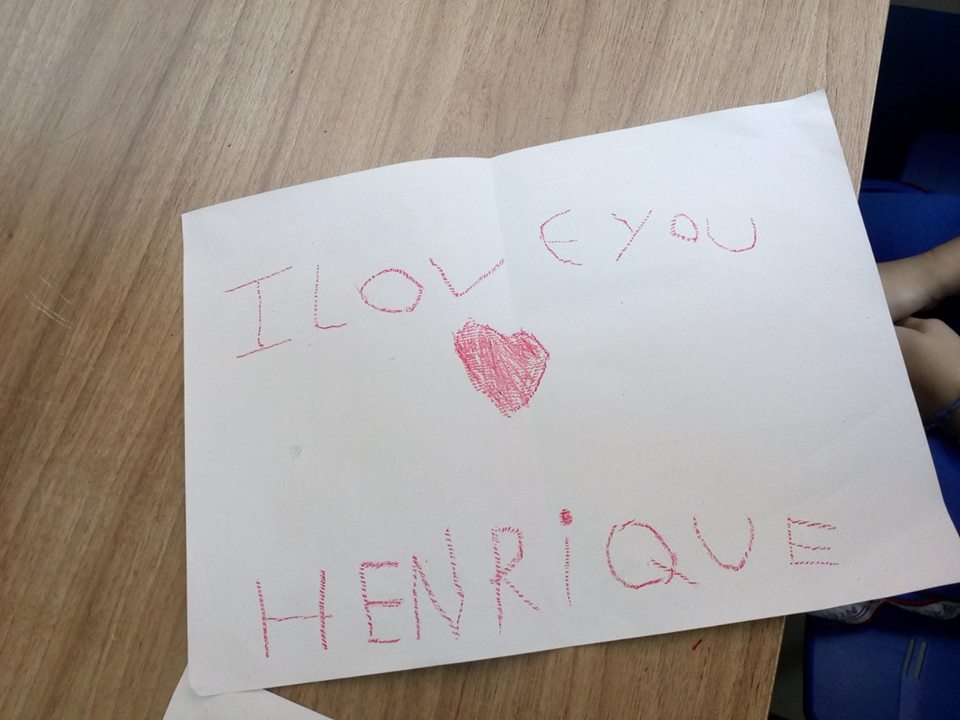 I LOVE YOU
HENRiQUE